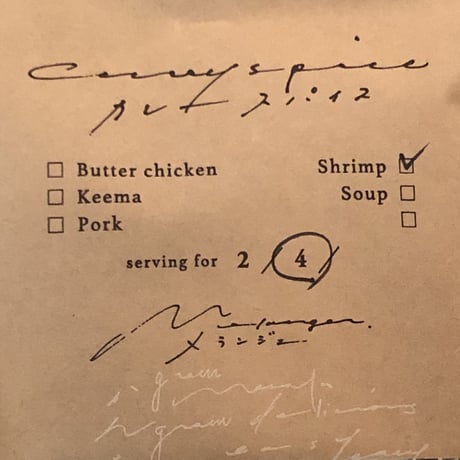 Curry spice
カレー スパイス
Butter chicken
Keema
Pork
Shrimp
Soup
serving for 2 / 4
Melanger.
メランジェー
gram
gram delicious